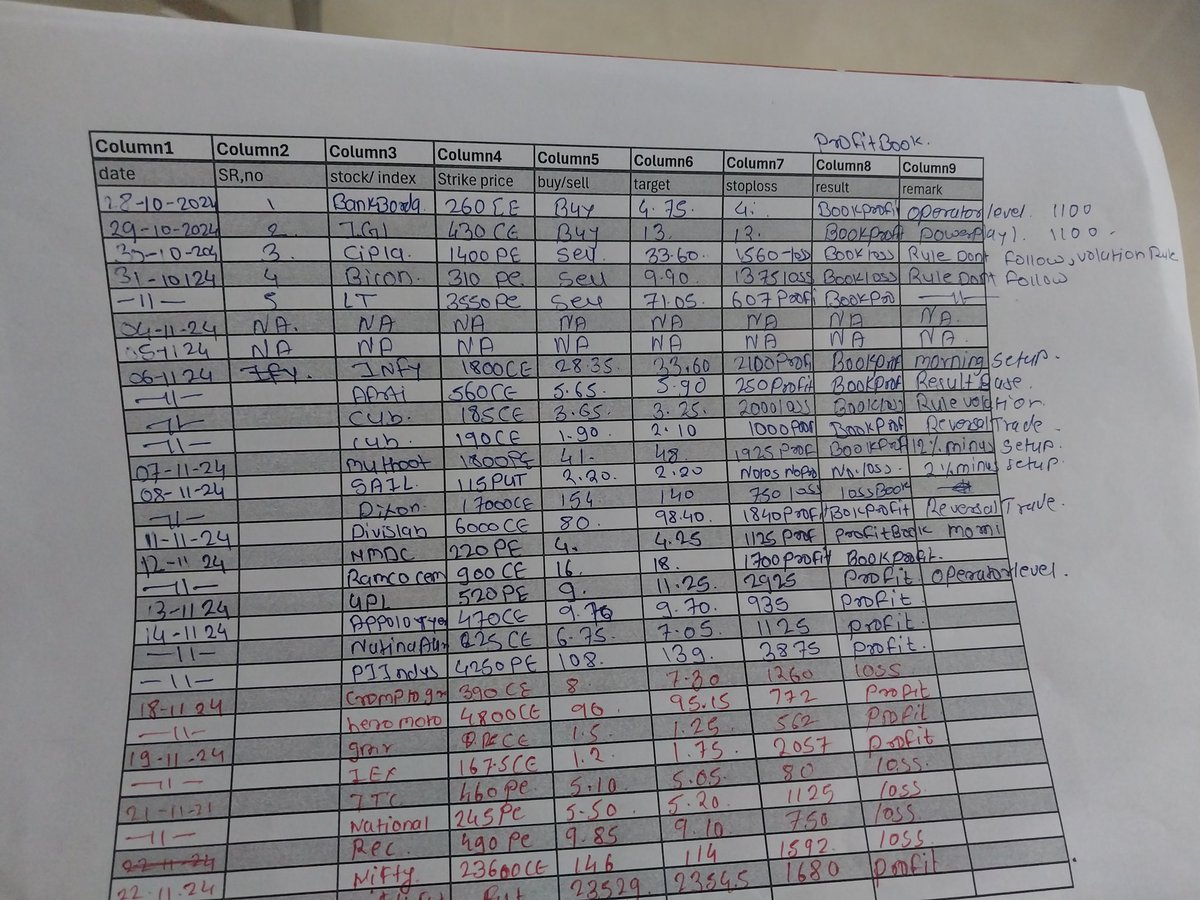 ProfitBook.
Column1 Column2 Column3 Column4 Column5 Column6 Column7 Column8 Column9
date SR,no stock/ index Strike price buy/sell target stoploss result remark
28-10-2024 1 BankBoda. 260 CE Buy 4.75. 4. Bookprofit operator level. 1100
29-10-2024 2. IGL 430 CE Buy 13. 12. Bookprofit powerplay1. 1100-
30-10-204 3. Cipla. 1400 PE Sell 33.60. 1560-loss Book loss Rule Dont follow, volation Rule
31-10124 4 Biocon. 310 pe. Sell 9.90 1375 loss Book loss Rule Dont follow
-11- 5 LT 3550 PE Sell 71.05. 607 Profi BookPro -11-
04-11-24 NA. NA NA NA NA NA NA NA.
05-1124 NA NA NA NA NA NA NA NA.
06-1124 INFY 1800CE 28.35. 33.60 2100Profi BookProf morning Setup.
-11- 560CE 5.65. 5.90 250 Profit BookProf Result Base.
-11- Cub. 185CE 3.65. 3.25. 2000loss Bookloss Rule volation
-11- Cub. 190CE 1.90. 2.10 1000 Prof BookProf Reversal Trade.
07-11-24 Muthoot 1800PE 41. 48. 1925 Prof BookProf 12% minus Setup.
08-11-24 SAIL. 115PUT 2.20. 2.20 No.loss. 2% minus Setup.
-11- Dixon. 17000CE 154 140 750 loss lossBook
11-11-24 Divislab 6000CE 80. 98.40. 1840Profit BokProfit Reversal Trave.
12-11 24 NMDC 220 PE 4. 4.25 1125 Prof ProfitBook morni
-11- Ramco cem 900 CE 16. 18. 1700Profit BookProfit.
13-1124 UPL 520PE 9. 11.25. 2925 Profit Operator level.
14-1124 Appolo tyre 470CE 9.70. 935 Profit.
-11- 225CE 6.75. 7.05. 1125 Profit.
-11- PIIndus 4250PE 108. 139. 3875 Profit.
18-11 24 Crompto gr 390 CE 8 7.30 1260 loss
-11- hero moto 4800CE 96 95.15 772 Profit
19-11-24 gmr 1.5 1.25. 562 Profit
-11- IEX 167.5CE 1.2. 1.75. 2057 Profit
21-11-21 ITC 460 PE 5.10 5.05. 80 loss.
-11- National 245 PE 5.50 5.20. 1125 loss
22-11-24 Rec. 490 PE 9.85 9.10 750 loss.
22-11.24 Nifty. 23600CE 146 114 1592. loss
23529. 23545 1680 Profit